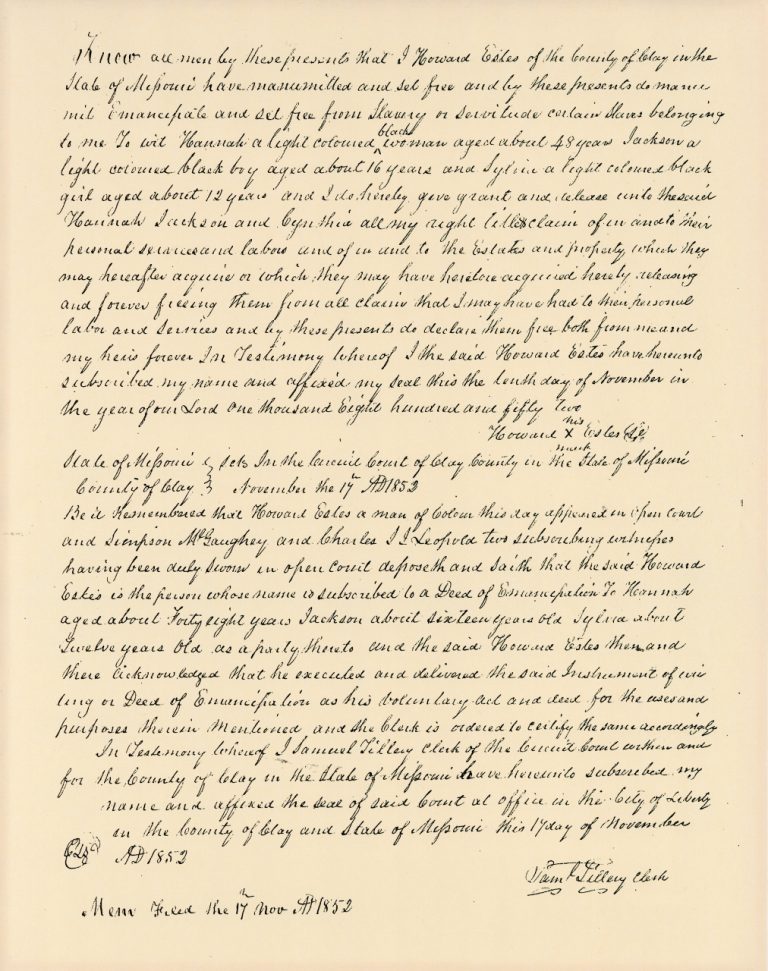 Know all men by these presents that I Howard Estes of the County of Clay in the
State of Missouri have manumitted and set free and by these presents do manu
mit Emancipate and set free from Slavery or Servitude certain Slaves belonging
to me To wit Hannah a light coloured black woman aged about 48 years Jackson a
light coloured black boy aged about 16 years and Sylvia a light coloured black
girl aged about 12 years and I do hereby give grant and release unto the said
Hannah Jackson and Cynthia all my right title & claim of in and to their
personal services and labors and of in and to the Estates and property which they
may hereafter acquire or which they may have heretofore acquired hereby releasing
and forever freeing them from all claim that I may have had to their personal
labor and services and by these presents do declare them free both from me and
my heirs forever In Testimony Whereof I the said Howard Estes have hereunto
subscribed my name and affixed my seal this the tenth day of November in
the year of our Lord One thousand Eight hundred and fifty two
Howard his X mark Estes
State of Missouri } Sct. In the Circuit Court of Clay County in the State of Missouri
County of Clay } November the 17th AD 1852
Be it Remembered that Howard Estes a man of Colour this day appeared in open court
and Simpson McGaughey and Charles J L Leopold two subscribing witnesses
having been duly sworn in open court deposeth and saith that the said Howard
Estes is the person whose name is subscribed to a Deed of Emancipation To Hannah
aged about Forty eight years Jackson about sixteen years old Sylvia about
Twelve years Old as a party thereto and the said Howard Estes then and
there acknowledged that he executed and delivered the said Instrument of wri
ting or Deed of Emancipation as his voluntary act and deed for the uses and
purposes therein mentioned and the Clerk is ordered to certify the same accordingly
In Testimony Whereof I Samuel Tillery Clerk of the Circuit Court within and
for the County of Clay in the State of Missouri have hereunto subscribed my
name and affixed the seal of said Court at office in the City of Liberty
in the County of Clay and State of Missouri this 17 day of November
AD 1852
Saml Tillery Clerk
Mem Filed the 17th Nov AD 1852